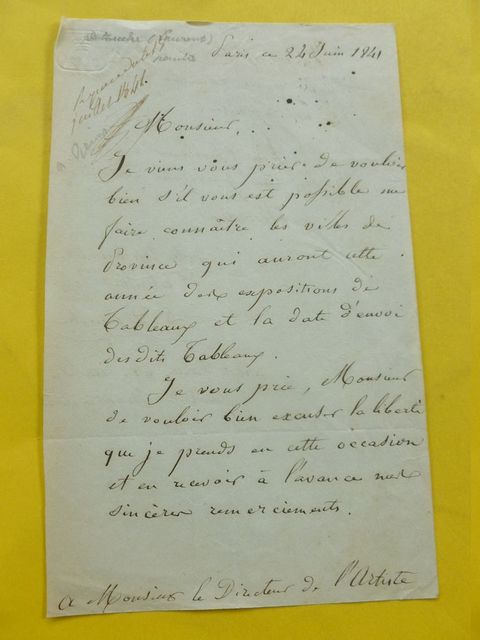 (Laurent)
Paris ce 24 Juin 1841
juillet 1841.
Monsieur,
Je viens vous prier de vouloir
bien s'il vous est possible me
faire connaître les villes de
Province qui auront cette
année des expositions de
Tableaux et la date d'envoi
desdits Tableaux.
Je vous prie, Monsieur
de vouloir bien excuser la liberté
que je prends en cette occasion
et en recevoir à l'avance mes
sincères remerciements.
A Monsieur le Directeur de l'Artiste